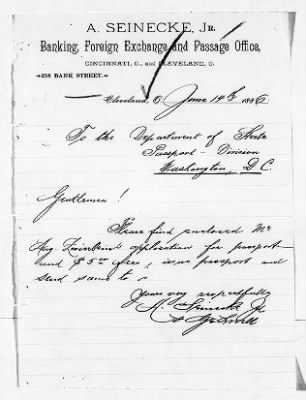 A. SEINECKE, JR.
Banking, Foreign Exchange and Passage Office,
CINCINNATI, O., and CLEVELAND, O.
258 BANK STREET.
Cleveland, O. June 14th 1886.
To the Department of State
Passport Division
Washington, D.C.
Gentlemen!
Please find enclosed Mr
Aug. application for passport
and $5 00 fee, issue passport and
send same to
Yours very respectfully
A. Seinecke Jr